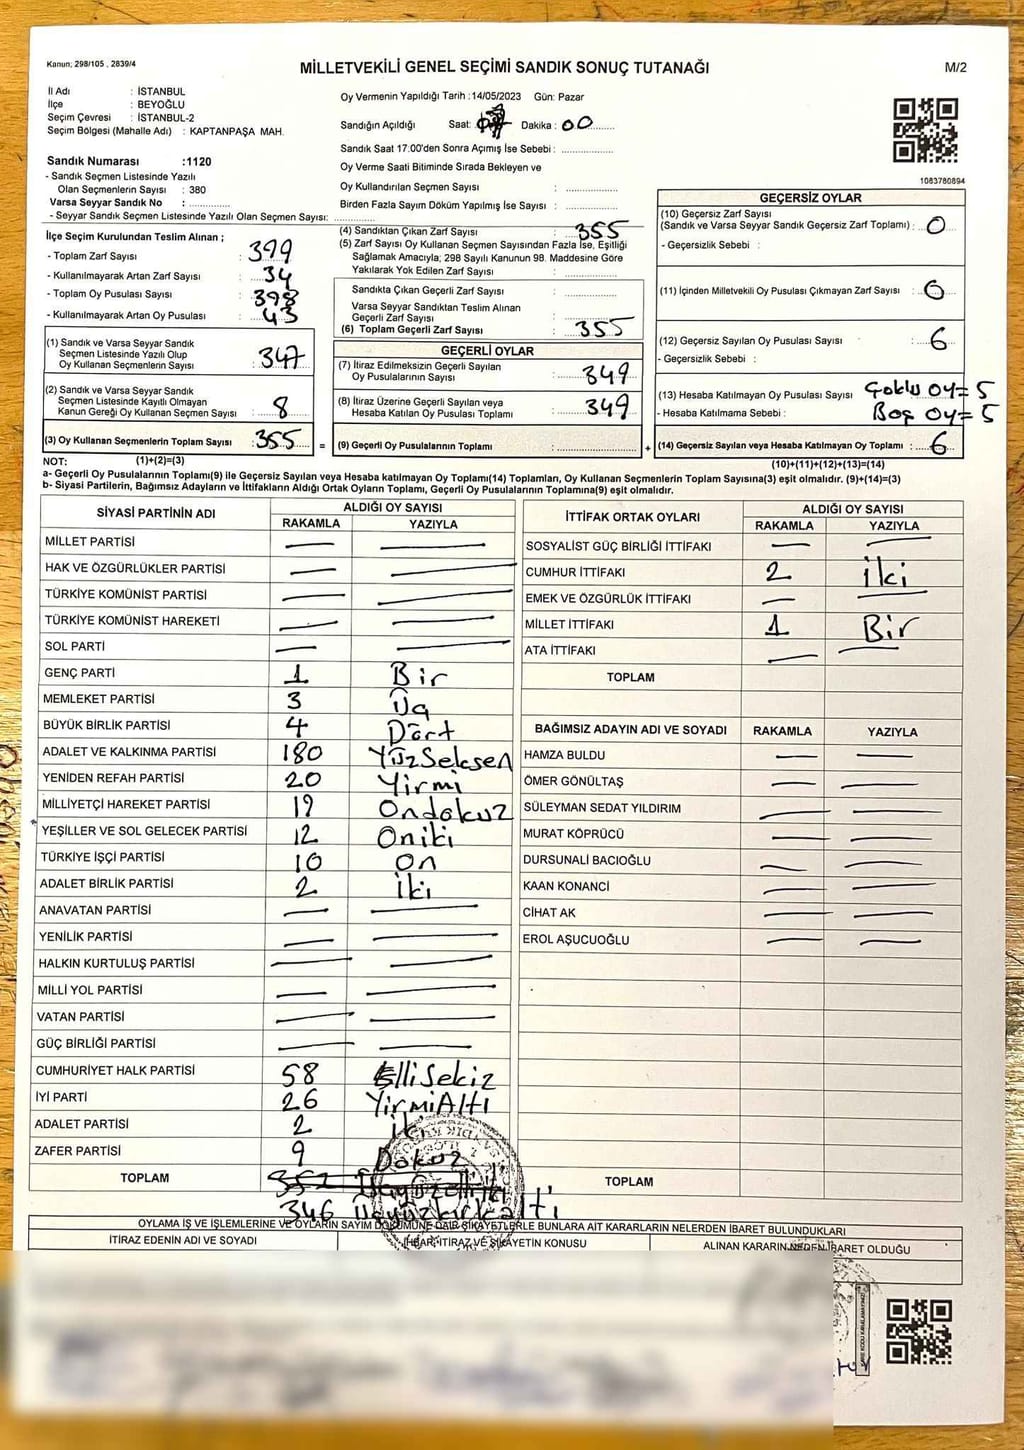 Kanun; 298/105 , 2839/4
MİLLETVEKİLİ GENEL SEÇİMİ SANDIK SONUÇ TUTANAĞI
M/2
İl Adı : İSTANBUL
İlçe : BEYOĞLU
Seçim Çevresi : İSTANBUL-2
Seçim Bölgesi (Mahalle Adı) : KAPTANPAŞA MAH.
Sandık Numarası :1120
- Sandık Seçmen Listesinde Yazılı
Olan Seçmenlerin Sayısı : 380
Varsa Seyyar Sandık No :
- Seyyar Sandık Seçmen Listesinde Yazılı Olan Seçmen Sayısı:
Oy Vermenin Yapıldığı Tarih :14/05/2023 Gün: Pazar
Sandığın Açıldığı Saat: Dakika : 00
Sandık Saat 17:00'den Sonra Açımış İse Sebebi :
Oy Verme Saati Bitiminde Sırada Bekleyen ve
Oy Kullandırılan Seçmen Sayısı :
Birden Fazla Sayım Döküm Yapılmış İse Sayısı :
1083780894
İlçe Seçim Kurulundan Teslim Alınan ;
- Toplam Zarf Sayısı : 399
- Kullanılmayarak Artan Zarf Sayısı : 34
- Toplam Oy Pusulası Sayısı : 398
- Kullanılmayarak Artan Oy Pusulası : 43
(1) Sandık ve Varsa Seyyar Sandık
Seçmen Listesinde Yazılı Olup
Oy Kullanan Seçmenlerin Sayısı : 347
(2) Sandık ve Varsa Seyyar Sandık
Seçmen Listesinde Kayıtlı Olmayan
Kanun Gereği Oy Kullanan Seçmen Sayısı : 8
(3) Oy Kullanan Seçmenlerin Toplam Sayısı : 355 =
(4) Sandıktan Çıkan Zarf Sayısı : 355
(5) Zarf Sayısı Oy Kullanan Seçmen Sayısından Fazla İse, Eşitliği
Sağlamak Amacıyla; 298 Sayılı Kanunun 98. Maddesine Göre
Yakılarak Yok Edilen Zarf Sayısı :
Sandıkta Çıkan Geçerli Zarf Sayısı :
Varsa Seyyar Sandıktan Teslim Alınan
Geçerli Zarf Sayısı :
(6) Toplam Geçerli Zarf Sayısı : 355
GEÇERLİ OYLAR
(7) İtiraz Edilmeksizin Geçerli Sayılan
Oy Pusulalarının Sayısı : 349
(8) İtiraz Üzerine Geçerli Sayılan veya
Hesaba Katılan Oy Pusulası Toplamı : 349
(9) Geçerli Oy Pusulalarının Toplamı : +
GEÇERSİZ OYLAR
(10) Geçersiz Zarf Sayısı
(Sandık ve Varsa Seyyar Sandık Geçersiz Zarf Toplamı) : 0
- Geçersizlik Sebebi :
(11) İçinden Milletvekili Oy Pusulası Çıkmayan Zarf Sayısı : 0
(12) Geçersiz Sayılan Oy Pusulası Sayısı : 6
- Geçersizlik Sebebi :
(13) Hesaba Katılmayan Oy Pusulası Sayısı Çoklu Oy= 5
- Hesaba Katılmama Sebebi : Boş Oy= 5
(14) Geçersiz Sayılan veya Hesaba Katılmayan Oy Toplamı : 6
NOT: (1)+(2)=(3)
(10)+(11)+(12)+(13)=(14)
a- Geçerli Oy Pusulalarının Toplamı(9) ile Geçersiz Sayılan veya Hesaba katılmayan Oy Toplamı(14) Toplamları, Oy Kullanan Seçmenlerin Toplam Sayısına(3) eşit olmalıdır. (9)+(14)=(3)
b- Siyasi Partilerin, Bağımsız Adayların ve İttifakların Aldığı Ortak Oyların Toplamı, Geçerli Oy Pusulalarının Toplamına(9) eşit olmalıdır.
SİYASİ PARTİNİN ADI ALDIĞI OY SAYISI
RAKAMLA YAZIYLA
MİLLET PARTİSİ
HAK VE ÖZGÜRLÜKLER PARTİSİ
TÜRKİYE KOMÜNİST PARTİSİ
TÜRKİYE KOMÜNİST HAREKETİ
SOL PARTİ
GENÇ PARTİ 1 Bir
MEMLEKET PARTİSİ 3 Üç
BÜYÜK BİRLİK PARTİSİ 4 Dört
ADALET VE KALKINMA PARTİSİ 180 YüzSeksen
YENİDEN REFAH PARTİSİ 20 Yirmi
MİLLİYETÇİ HAREKET PARTİSİ 19 Ondokuz
YEŞİLLER VE SOL GELECEK PARTİSİ 12 Oniki
TÜRKİYE İŞÇİ PARTİSİ 10 On
ADALET BİRLİK PARTİSİ 2 İki
ANAVATAN PARTİSİ
YENİLİK PARTİSİ
HALKIN KURTULUŞ PARTİSİ
MİLLİ YOL PARTİSİ
VATAN PARTİSİ
GÜÇ BİRLİĞİ PARTİSİ
CUMHURİYET HALK PARTİSİ 58 ElliSekiz
İYİ PARTİ 26 YirmiAltı
ADALET PARTİSİ 2 İki
ZAFER PARTİSİ 9 Dokuz
TOPLAM 352 Üçyüzelliiki
346 Üçyüzkırkaltı
İTTİFAK ORTAK OYLARI ALDIĞI OY SAYISI
RAKAMLA YAZIYLA
SOSYALİST GÜÇ BİRLİĞİ İTTİFAKI
CUMHUR İTTİFAKI 2 İki
EMEK VE ÖZGÜRLÜK İTTİFAKI
MİLLET İTTİFAKI 1 Bir
ATA İTTİFAKI
TOPLAM
BAĞIMSIZ ADAYIN ADI VE SOYADI RAKAMLA YAZIYLA
HAMZA BULDU
ÖMER GÖNÜLTAŞ
SÜLEYMAN SEDAT YILDIRIM
MURAT KÖPRÜCÜ
DURSUNALİ BACIOĞLU
KAAN KONANCİ
CİHAT AK
EROL AŞUCUOĞLU
TOPLAM
OYLAMA İŞ VE İŞLEMLERİNE VE OYLARIN SAYIM DÖKÜMÜNE DAİR ŞİKAYETLERLE BUNLARA AİT KARARLARIN NELERDEN İBARET BULUNDUKLARI
İTİRAZ EDENİN ADI VE SOYADI İHBAR, İTİRAZ VE ŞİKAYETİN KONUSU ALINAN KARARIN NEDEN İBARET OLDUĞU